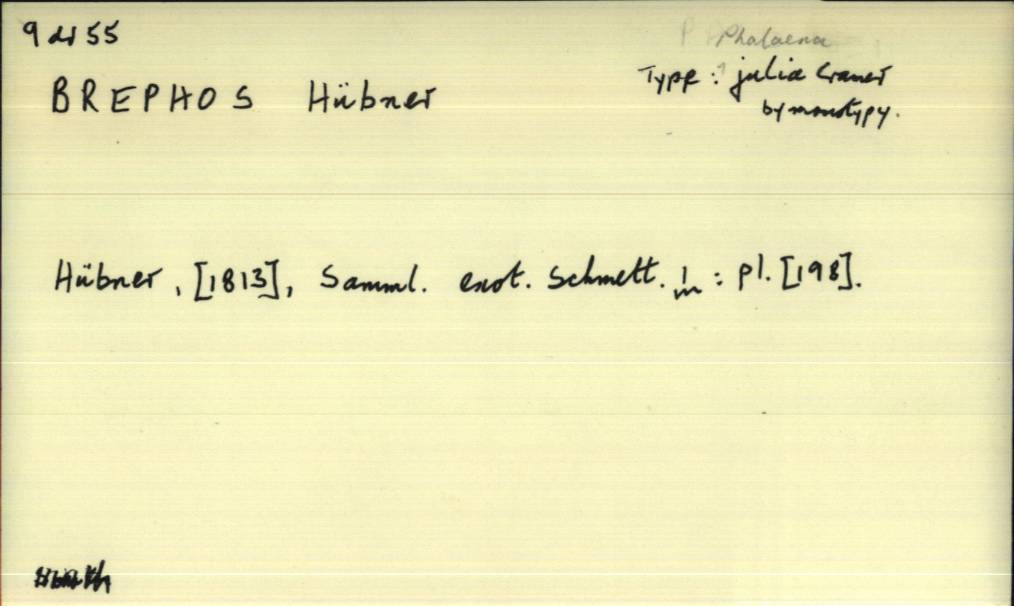 9 55
Phalaena
BREPHOS Hübner
Type: julia Cramer
by monotypy.
Hübner, [1813], Samml. exot. Schmett. 1: pl. [198].